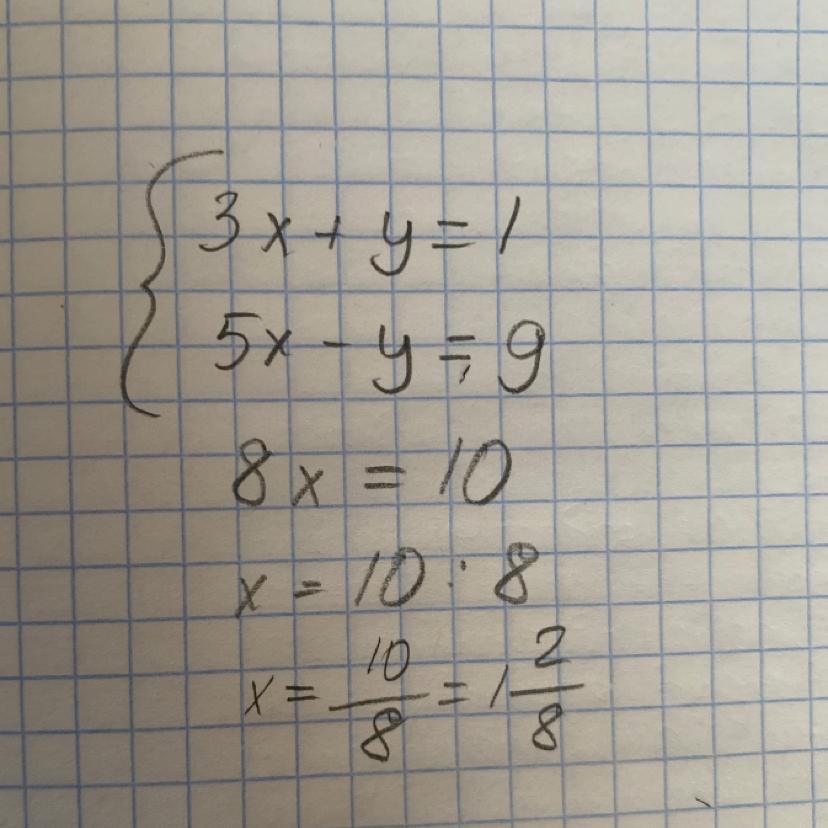 3x + y = 1
5x - y = 9
8x = 10
x = 10 : 8
x = 10/8 = 1 2/8